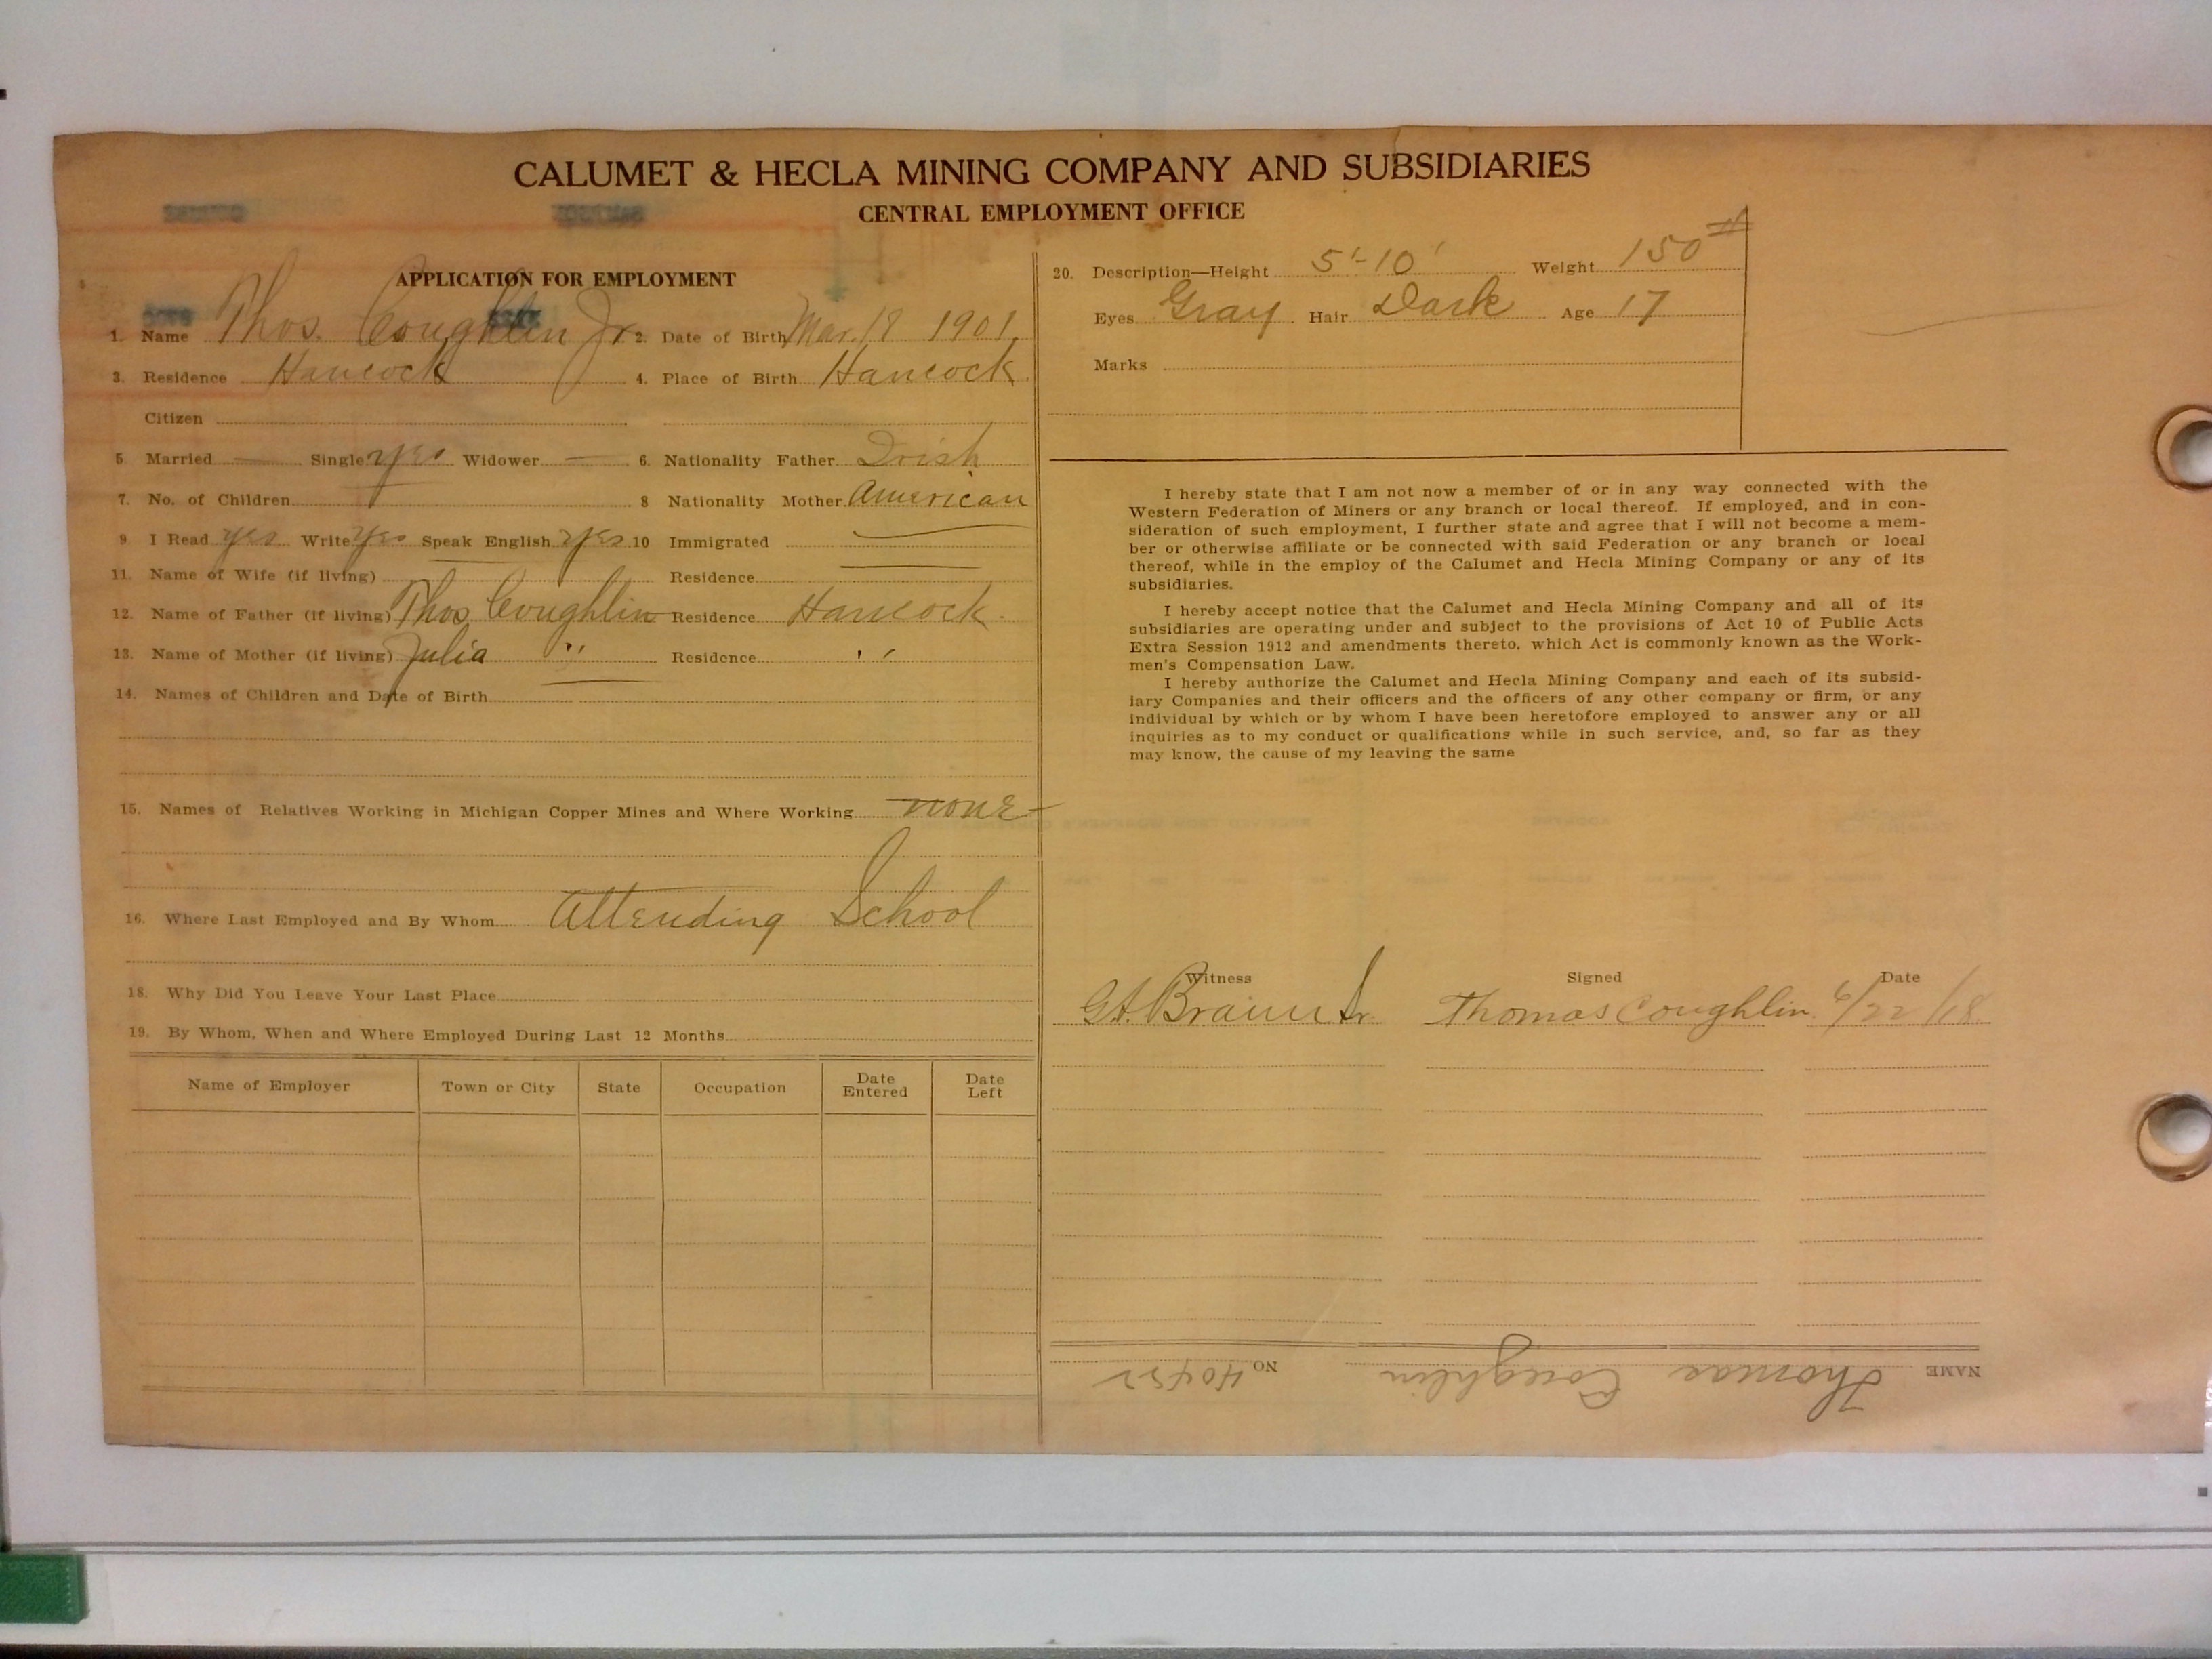 CALUMET & HECLA MINING COMPANY AND SUBSIDIARIES
CENTRAL EMPLOYMENT OFFICE
APPLICATION FOR EMPLOYMENT
1. Name Thos. Coughlin Jr. 2. Date of Birth Mar. 18 1901
3. Residence Hancock 4. Place of Birth Hancock
Citizen
5 Married — Single yes Widower — 6. Nationality Father Irish
7. No. of Children 8 Nationality Mother American
9 I Read yes Write yes Speak English yes 10 Immigrated —
11. Name of Wife (if living) Residence
12. Name of Father (if living) Thos Coughlin Residence Hancock
13. Name of Mother (if living) Julia " Residence "
14. Names of Children and Date of Birth
15. Names of Relatives Working in Michigan Copper Mines and Where Working none
16. Where Last Employed and By Whom Attending School
18. Why Did You Leave Your Last Place
19. By Whom, When and Where Employed During Last 12 Months
Name of Employer Town or City State Occupation Date Entered Date Left
20. Description—Height 5'-10' Weight 150 #
Eyes Gray Hair Dark Age 17
Marks
I hereby state that I am not now a member of or in any way connected with the
Western Federation of Miners or any branch or local thereof. If employed, and in con-
sideration of such employment, I further state and agree that I will not become a mem-
ber or otherwise affiliate or be connected with said Federation or any branch or local
thereof, while in the employ of the Calumet and Hecla Mining Company or any of its
subsidiaries.
I hereby accept notice that the Calumet and Hecla Mining Company and all of its
subsidiaries are operating under and subject to the provisions of Act 10 of Public Acts
Extra Session 1912 and amendments thereto, which Act is commonly known as the Work-
men's Compensation Law.
I hereby authorize the Calumet and Hecla Mining Company and each of its subsid-
iary Companies and their officers and the officers of any other company or firm, or any
individual by which or by whom I have been heretofore employed to answer any or all
inquiries as to my conduct or qualifications while in such service, and, so far as they
may know, the cause of my leaving the same
Witness Signed Date
Thomas Coughlin 6/22/18
NAME Thomas Coughlin NO 40452